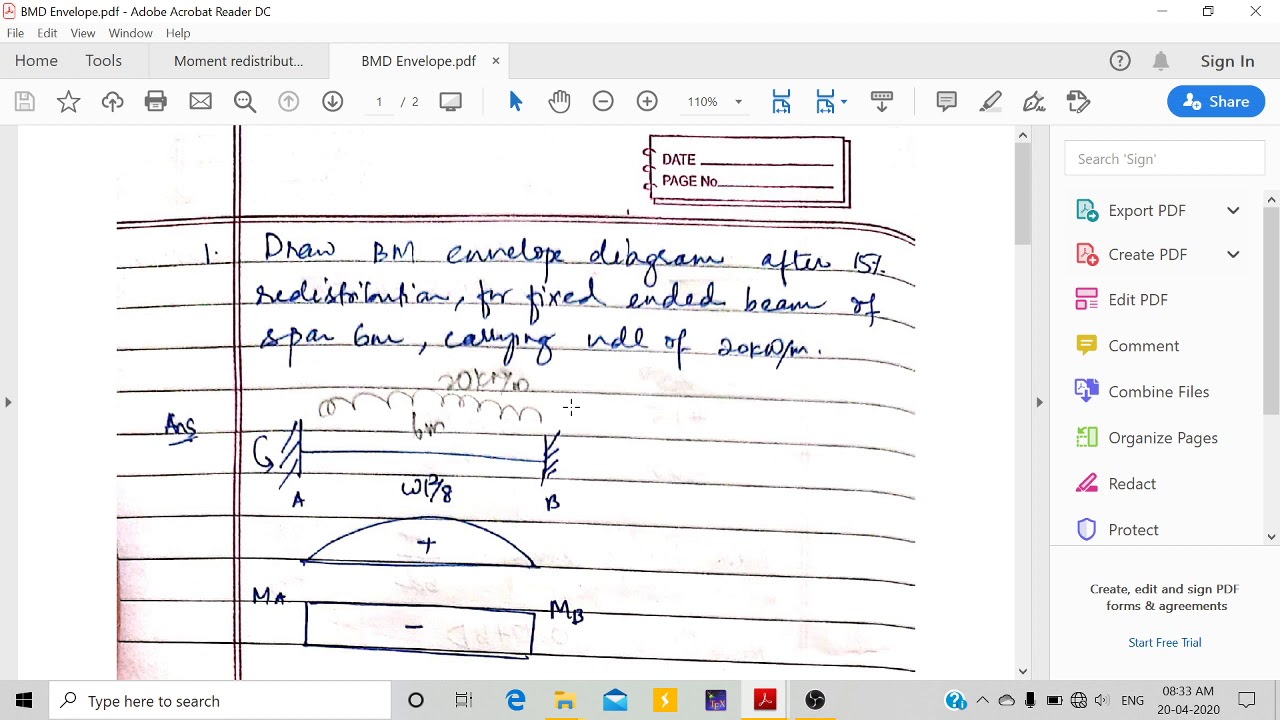 BMD Envelope.pdf - Adobe Acrobat Reader DC
File Edit View Window Help
Home Tools Moment redistribut... BMD Envelope.pdf × Sign In
1 / 2 110% Share
DATE
PAGE No.
Search 'Sign'
Export PDF
Create PDF
Edit PDF
Comment
Combine Files
Organize Pages
Redact
Protect
Create, edit and sign PDF
forms & agreements
Start Free Trial
1. Draw BM envelope diagram after 15%
redistribution, for fixed ended beam of
span 6m, carrying udl of 20kN/m.
20kN/m
Ans
6m
A wl²/8 B
+
MA MB
−
Type here to search
ENG 08:33 AM
20-04-2020